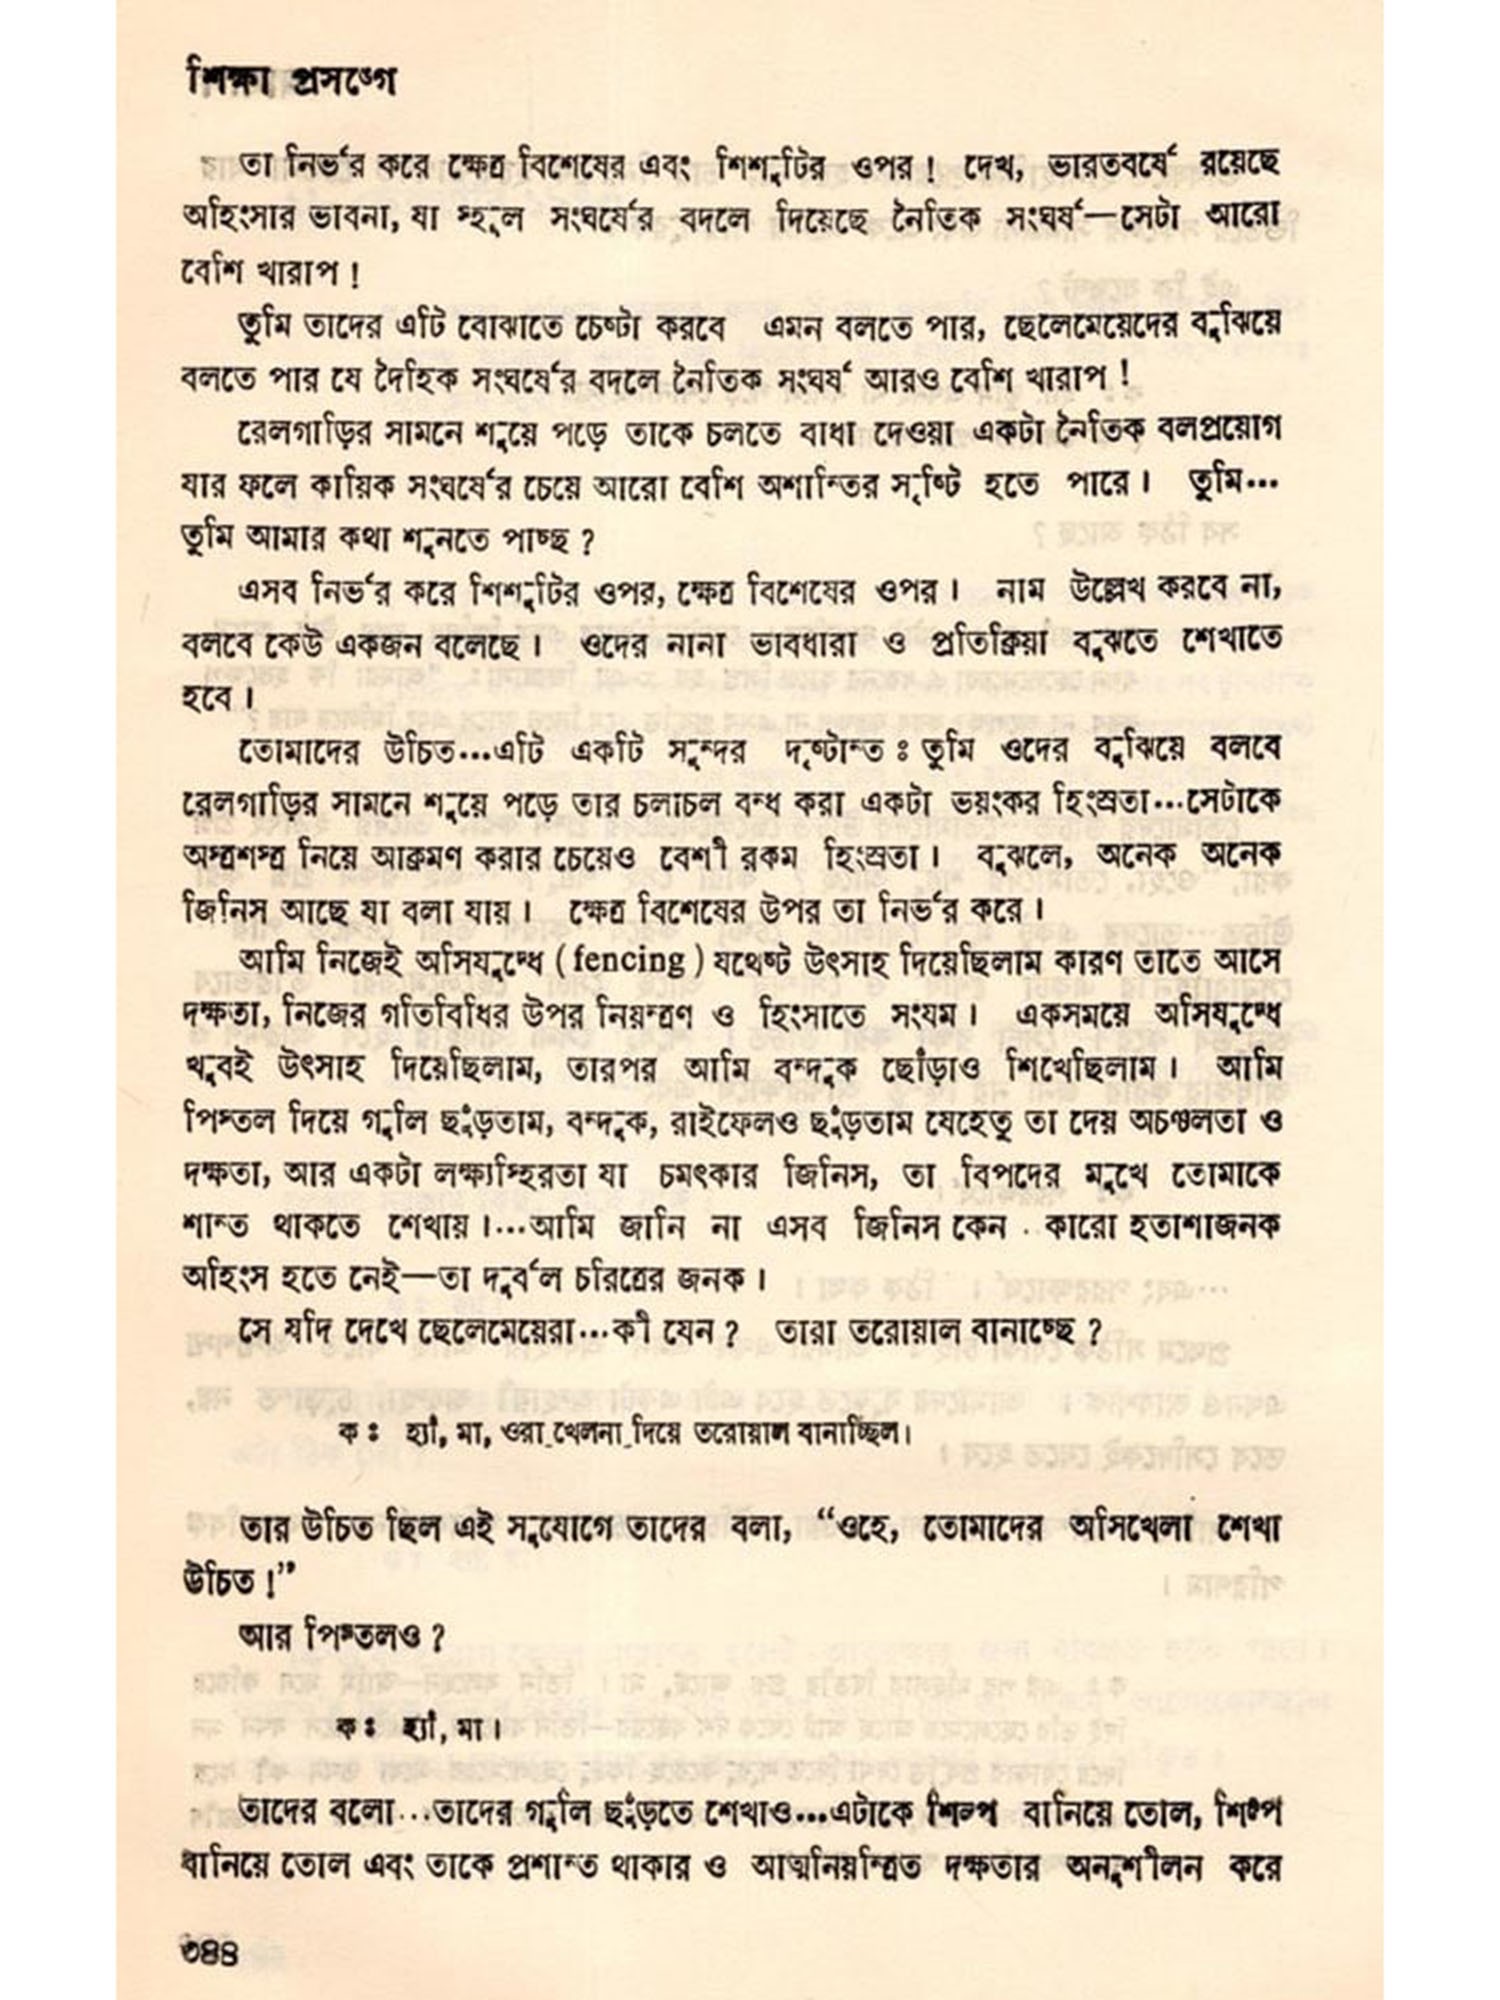 শিক্ষা প্রসঙ্গে
তা নির্ভর করে ক্ষেত্র বিশেষের এবং শিশুটির ওপর ! দেখ, ভারতবর্ষে রয়েছে
অহিংসার ভাবনা, যা স্থূল সংঘর্ষের বদলে দিয়েছে নৈতিক সংঘর্ষ—সেটা আরো
বেশি খারাপ !
তুমি তাদের এটি বোঝাতে চেষ্টা করবে এমন বলতে পার, ছেলেমেয়েদের বুঝিয়ে
বলতে পার যে দৈহিক সংঘর্ষের বদলে নৈতিক সংঘর্ষ আরও বেশি খারাপ !
রেলগাড়ির সামনে শুয়ে পড়ে তাকে চলতে বাধা দেওয়া একটা নৈতিক বলপ্রয়োগ
যার ফলে কায়িক সংঘর্ষের চেয়ে আরো বেশি অশান্তির সৃষ্টি হতে পারে। তুমি...
তুমি আমার কথা শুনতে পাচ্ছ ?
এসব নির্ভর করে শিশুটির ওপর, ক্ষেত্র বিশেষের ওপর। নাম উল্লেখ করবে না,
বলবে কেউ একজন বলেছে। ওদের নানা ভাবধারা ও প্রতিক্রিয়া বুঝতে শেখাতে
হবে।
তোমাদের উচিত...এটি একটি সুন্দর দৃষ্টান্ত : তুমি ওদের বুঝিয়ে বলবে
রেলগাড়ির সামনে শুয়ে পড়ে তার চলাচল বন্ধ করা একটা ভয়ংকর হিংস্রতা...সেটাকে
অস্ত্রশস্ত্র নিয়ে আক্রমণ করার চেয়েও বেশী রকম হিংস্রতা। বুঝলে, অনেক অনেক
জিনিস আছে যা বলা যায়। ক্ষেত্র বিশেষের উপর তা নির্ভর করে।
আমি নিজেই অসিযুদ্ধে (fencing) যথেষ্ট উৎসাহ দিয়েছিলাম কারণ তাতে আসে
দক্ষতা, নিজের গতিবিধির উপর নিয়ন্ত্রণ ও হিংসাতে সংযম। একসময়ে অসিযুদ্ধে
খুবই উৎসাহ দিয়েছিলাম, তারপর আমি বন্দুক ছোঁড়াও শিখেছিলাম। আমি
পিস্তল দিয়ে গুলি ছুঁড়তাম, বন্দুক, রাইফেলও ছুঁড়তাম যেহেতু তা দেয় অচঞ্চলতা ও
দক্ষতা, আর একটা লক্ষ্যস্থিরতা যা চমৎকার জিনিস, তা বিপদের মুখে তোমাকে
শান্ত থাকতে শেখায়।...আমি জানি না এসব জিনিস কেন কারো হতাশাজনক
অহিংস হতে নেই—তা দুর্বল চরিত্রের জনক।
সে যদি দেখে ছেলেমেয়েরা...কী যেন ? তারা তরোয়াল বানাচ্ছে ?
ক : হ্যাঁ, মা, ওরা খেলনা দিয়ে তরোয়াল বানাচ্ছিল।
তার উচিত ছিল এই সুযোগে তাদের বলা, “ওহে, তোমাদের অসিখেলা শেখা
উচিত !”
আর পিস্তলও ?
ক : হ্যাঁ, মা।
তাদের বলো...তাদের গুলি ছুঁড়তে শেখাও...এটাকে শিল্প বানিয়ে তোল, শিল্প
বানিয়ে তোল এবং তাকে প্রশান্ত থাকার ও আত্মনিয়ন্ত্রিত দক্ষতার অনুশীলন করে
৩৪৪